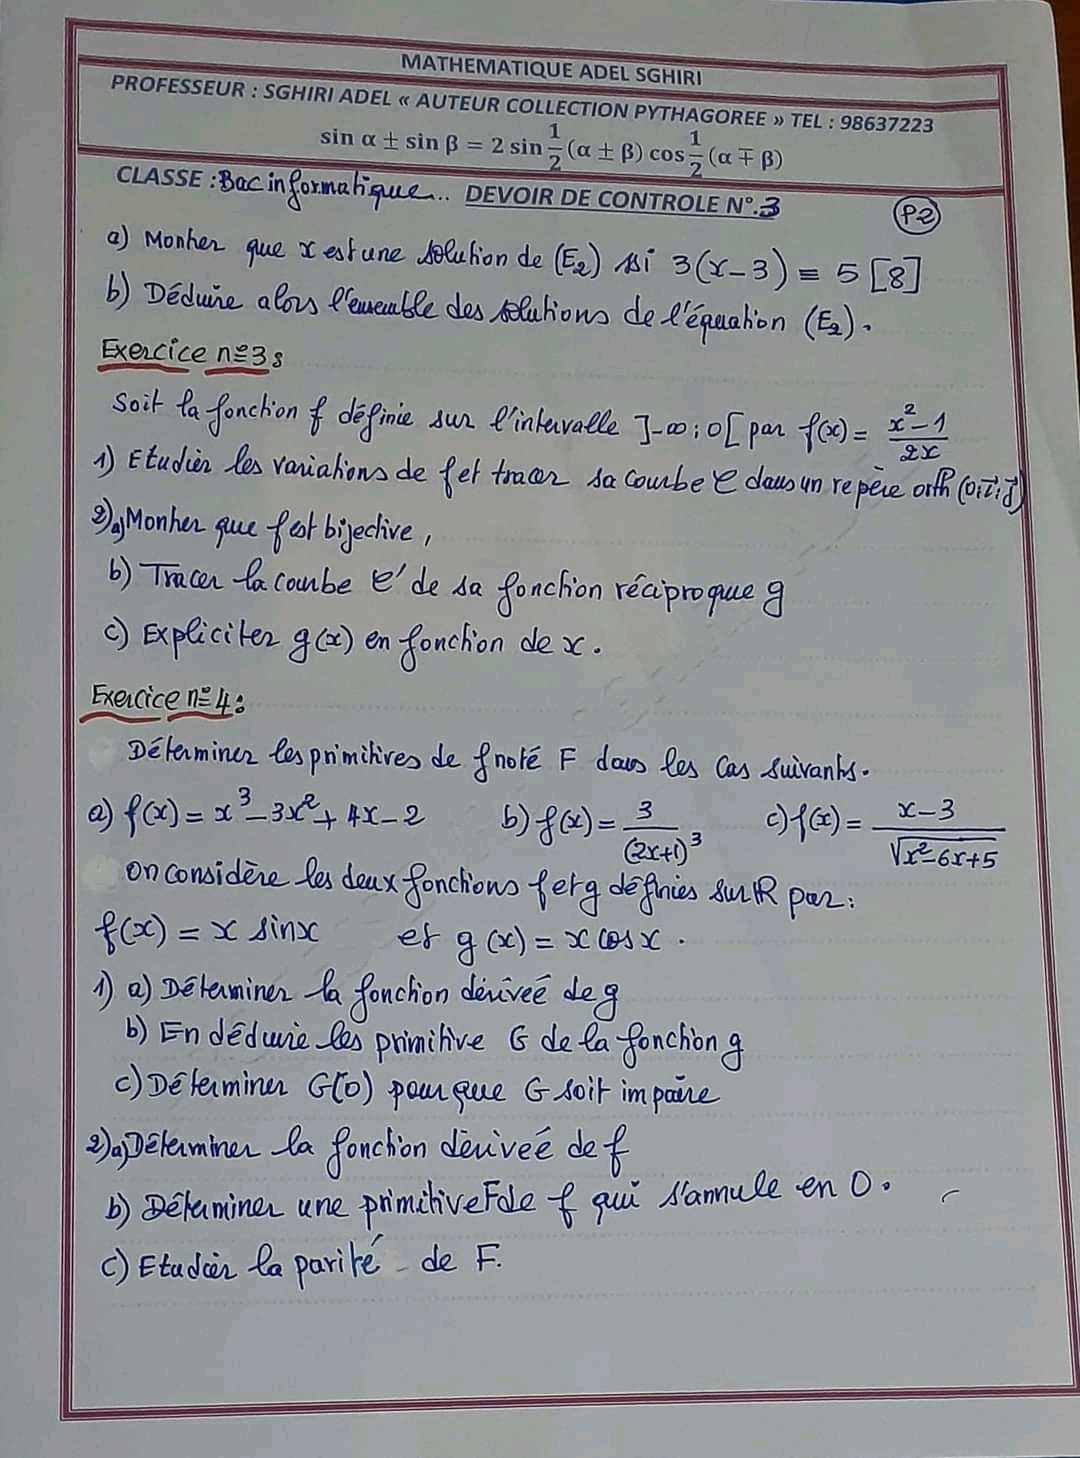 MATHEMATIQUE ADEL SGHIRI
PROFESSEUR : SGHIRI ADEL « AUTEUR COLLECTION PYTHAGOREE » TEL : 98637223
sin α ± sin β = 2 sin 1/2 (α ± β) cos 1/2 (α ∓ β)
CLASSE : Bac informatique... DEVOIR DE CONTROLE N°.3
P2
a) Montrer que x est une solution de (E₂) ssi 3(x-3) ≡ 5 [8]
b) Déduire alors l'ensemble des solutions de l'équation (E₂).
Exercice n°3:
Soit la fonction f définie sur l'intervalle ]-∞; 0[ par f(x) = (x²-1)/2x
1) Etudier les variations de f et tracer sa courbe C dans un repère orth (O, i⃗, j⃗)
2) a) Montrer que f est bijective,
b) Tracer la courbe C' de sa fonction réciproque g
c) Expliciter g(x) en fonction de x.
Exercice n°4:
Déterminer les primitives de f noté F dans les cas suivants.
a) f(x) = x³-3x²+4x-2 b) f(x) = 3/(2x+1)³ c) f(x) = (x-3)/√(x²-6x+5)
on considère les deux fonctions f et g définies sur ℝ par:
f(x) = x sinx et g(x) = x cosx.
1) a) Déterminer la fonction dériveé de g
b) En déduire les primitive G de la fonction g
c) Déterminer G(0) pour que G soit impaire
2) a) Déterminer la fonction dériveé de f
b) Déterminer une primitive F de f qui s'annule en 0.
c) Etudier la parité de F.